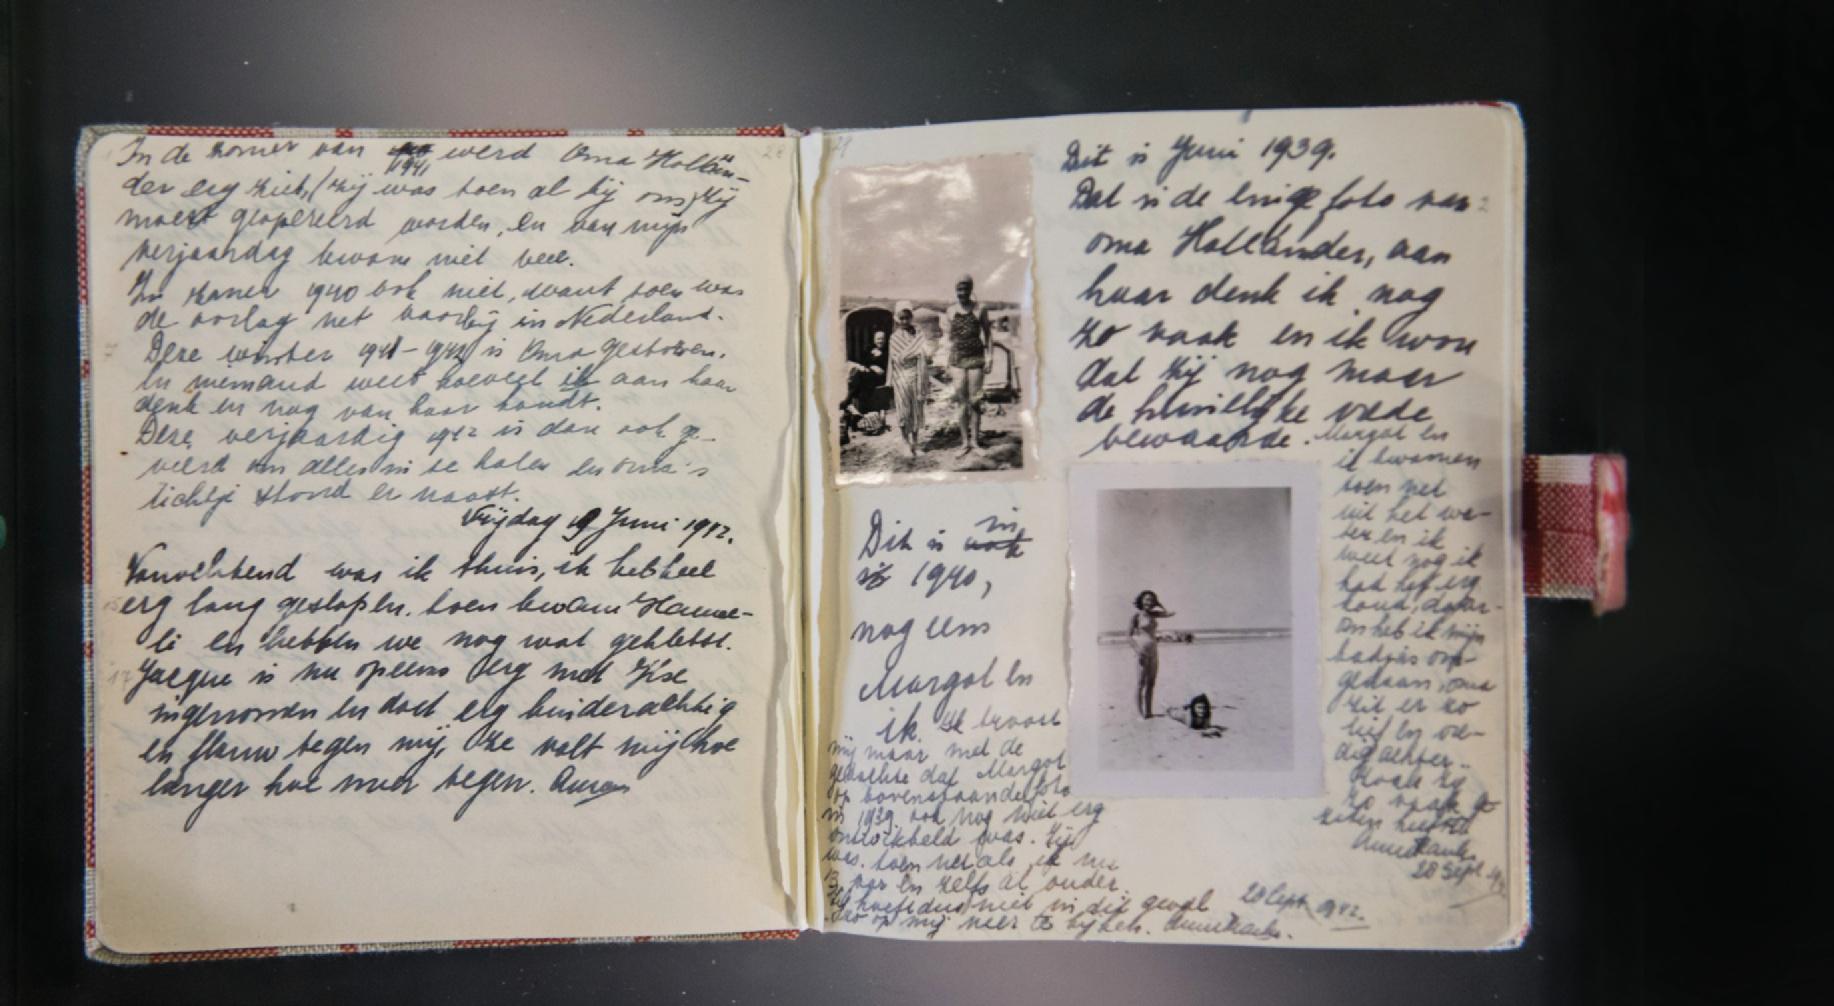 In de zomer van 1941 werd Oma Hollän-
der erg ziek, (zij was toen al bij ons) zij
moest geopereerd worden, en van mijn
verjaardag kwam niet veel.
In zomer 1940 ook niet, want toen was
de oorlog net voorbij in Nederland.
Deze winter 1941-1942 is Oma gestorven.
En niemand weet hoeveel ik aan haar
denk en nog van haar houdt.
Deze verjaardig 1942 is dan ook ge-
vierd om alles in te halen en oma's
lichtje stond er naast.
Vrijdag 19 Juni 1942.
Vanochtend was ik thuis, ik heb heel
erg lang geslapen, toen kwam Hanne-
li en hebben we nog wat gekletst.
Jacque is nu opeens erg met Ilse
ingenomen en doet erg kinderachtig
en flauw tegen mij, ze valt mij hoe
langer hoe meer tegen. Anne
28
29
Dit is Juni 1939.
Dat is de enige foto van
oma Holländer, aan
haar denk ik nog
zo vaak en ik wou
dat zij nog maar
de huiselijke vrede
bewaarde. Margot en
ik kwamen
toen net
uit het wa-
ter en ik
weet nog ik
had het erg
koud, daar-
om heb ik mijn
badjas om-
gedaan, oma
zit er zo
lief en
achter.
Zoals zij
zo vaak ge
zeten heeft.
Anne Frank.
28 Sept.
Dit is in
1940,
nog eens
Margot en
ik. Ik troost
mij maar met de
gedachte dat Margot
op bovenstaande foto
in 1939 ook nog niet erg
ontwikkeld was. Zij
was toen net als ik nu
13 jaar en zelfs al ouder.
Zij hoeft dus niet in dit geval
zo op mij neer te kijken. Anne Frank.
28 Sept. 1942.